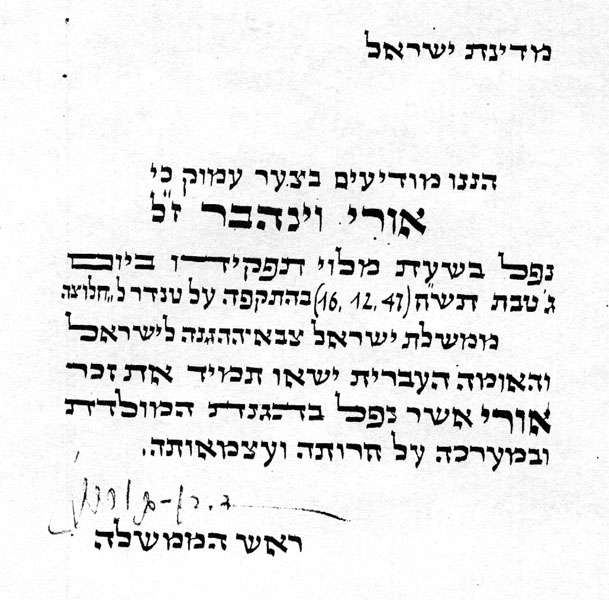 מדינת ישראל
הננו מודיעים בצער עמוק כי
אורי וינהבר ז"ל
נפל בשעת מלוי תפקידו ביום
ג' טבת תש"ח (16.12.47) בהתקפה על טנדר ל"חלוצה
ממשלת ישראל צבא-ההגנה לישראל
והאומה העברית ישאו תמיד את זכר
אורי אשר נפל בהגנת המולדת
ובמערכה על חרותה ועצמאותה.
ד. בן-גוריון
ראש הממשלה